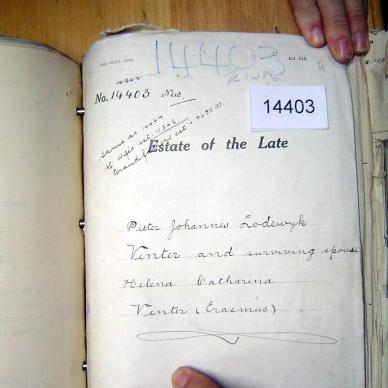 14403
No. 14403
14403
Same as
Estate of the Late
Pieter Johannes Lodewyk
Venter and surviving spouse
Helena Catharina
Venter (Erasmus)